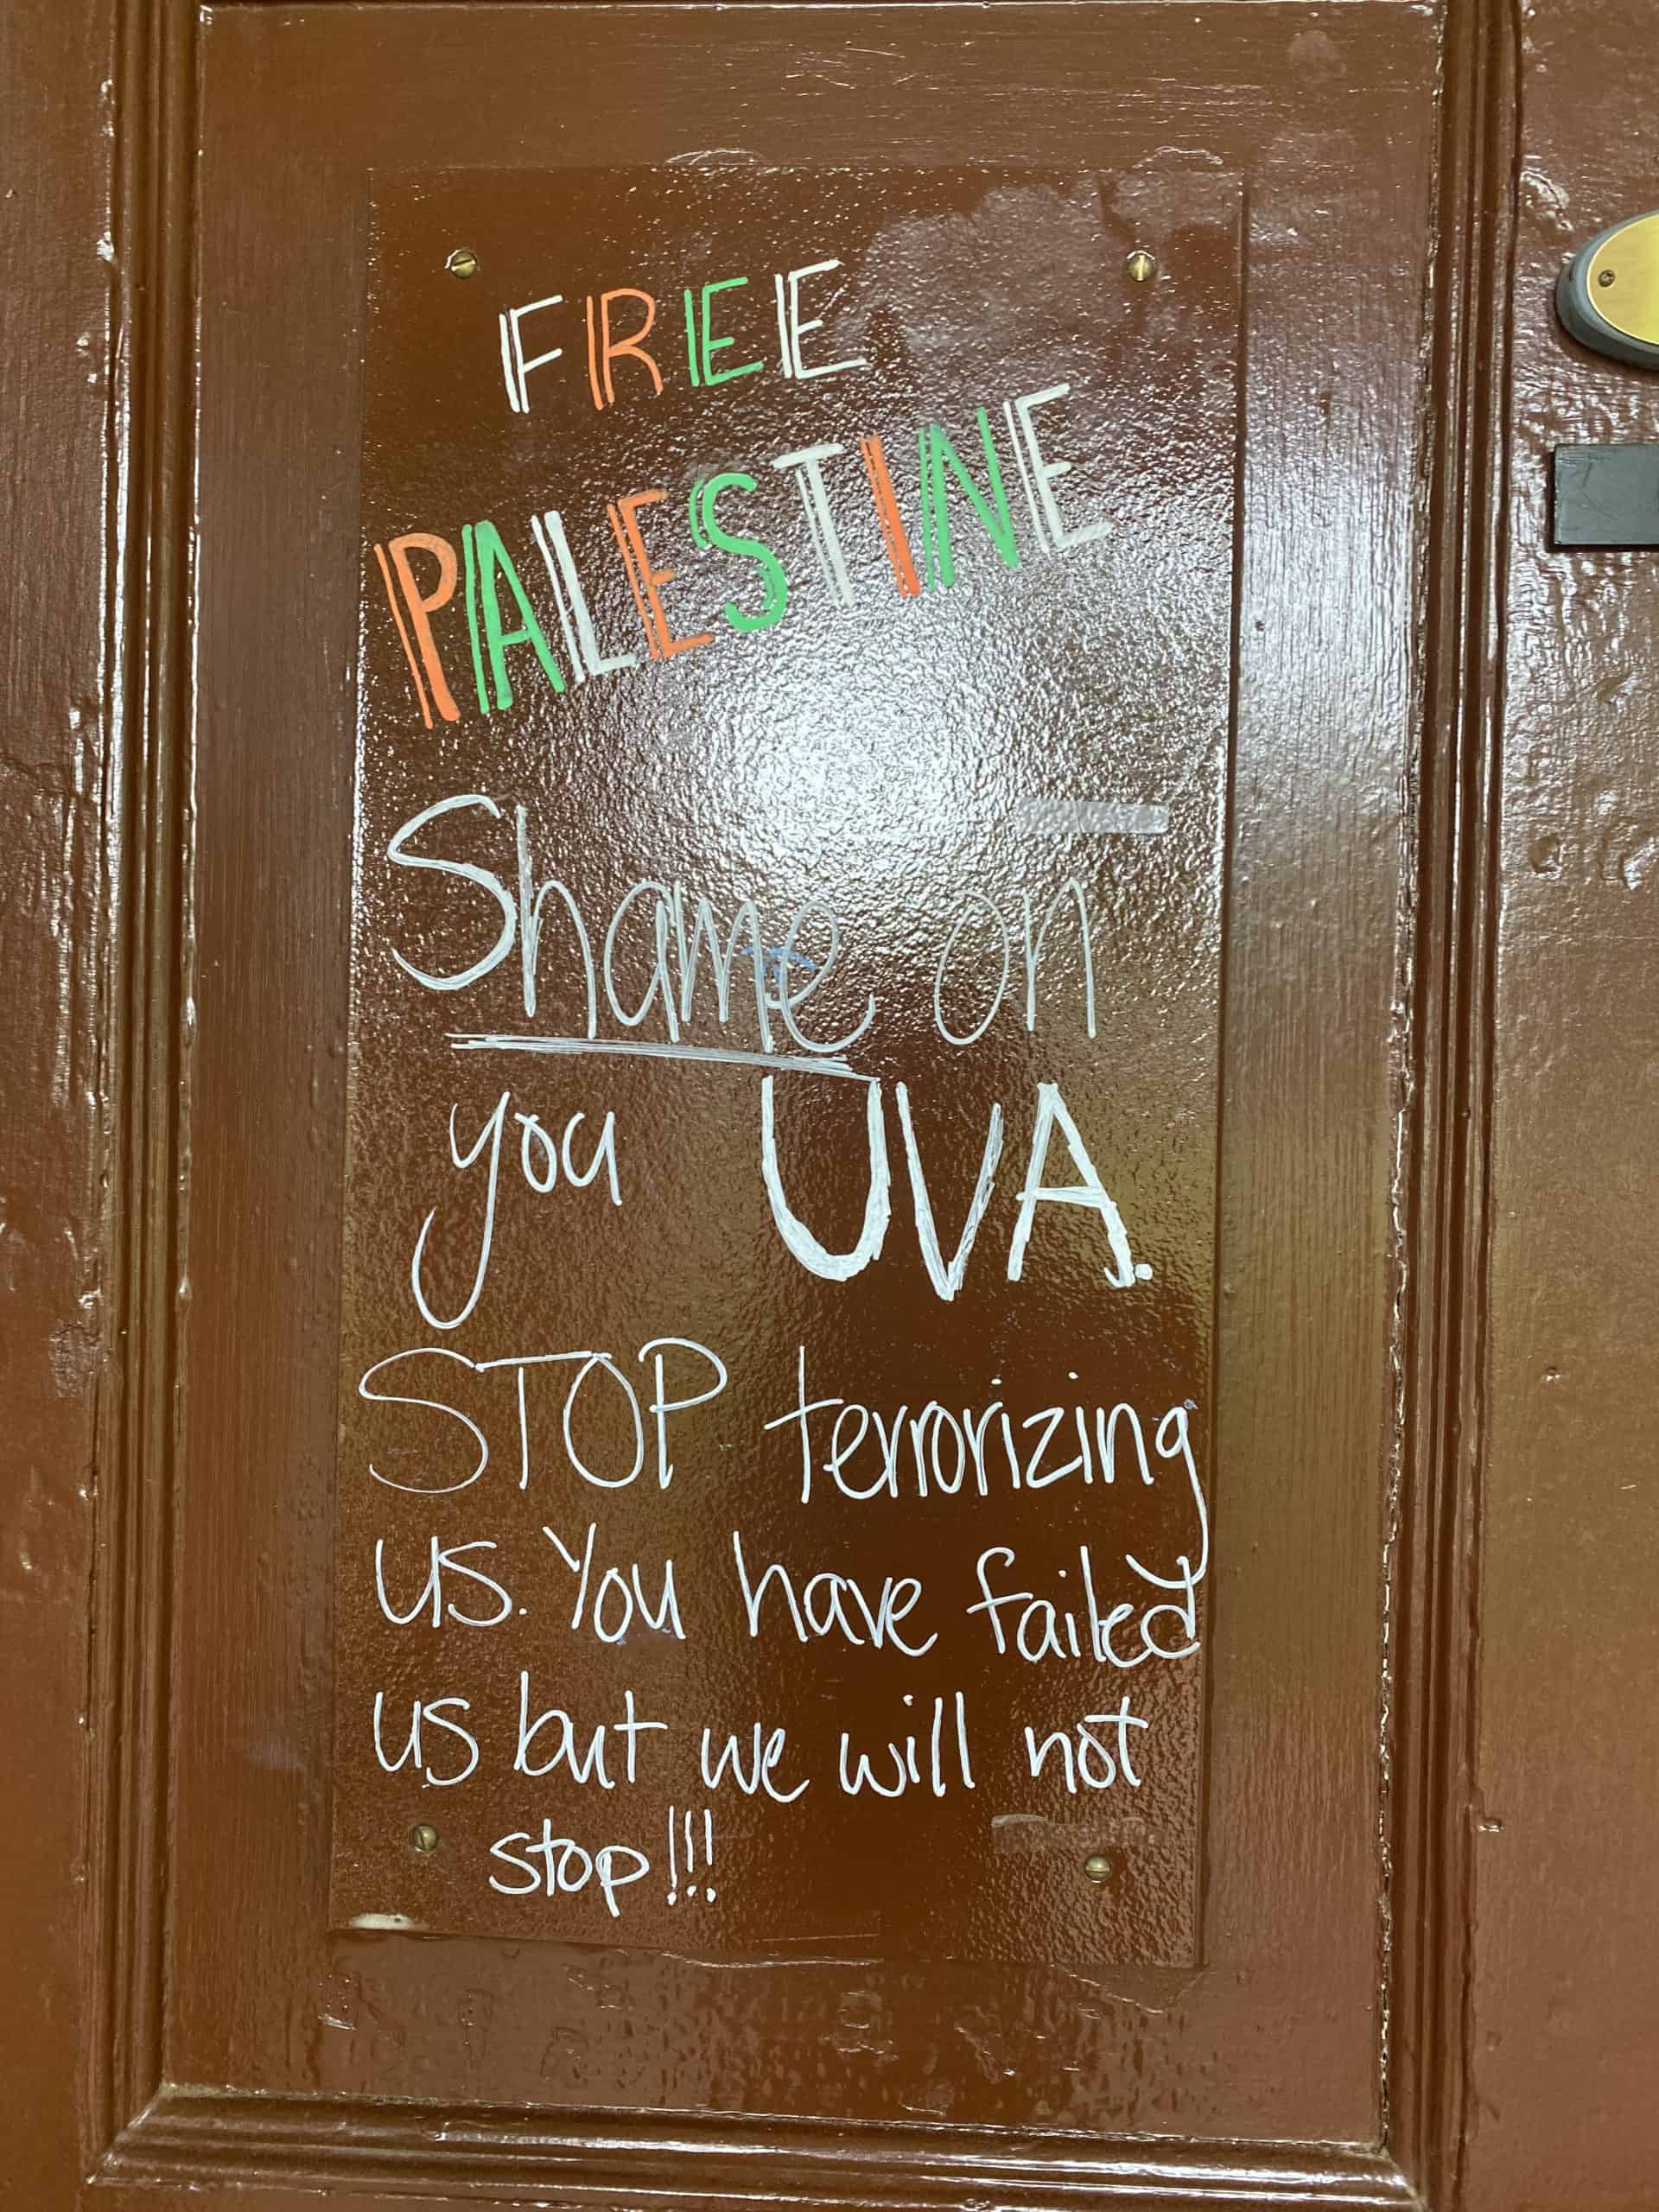 FREE
PALESTINE
Shame on
you UVA.
STOP terrorizing
us. You have failed
us but we will not
stop!!!